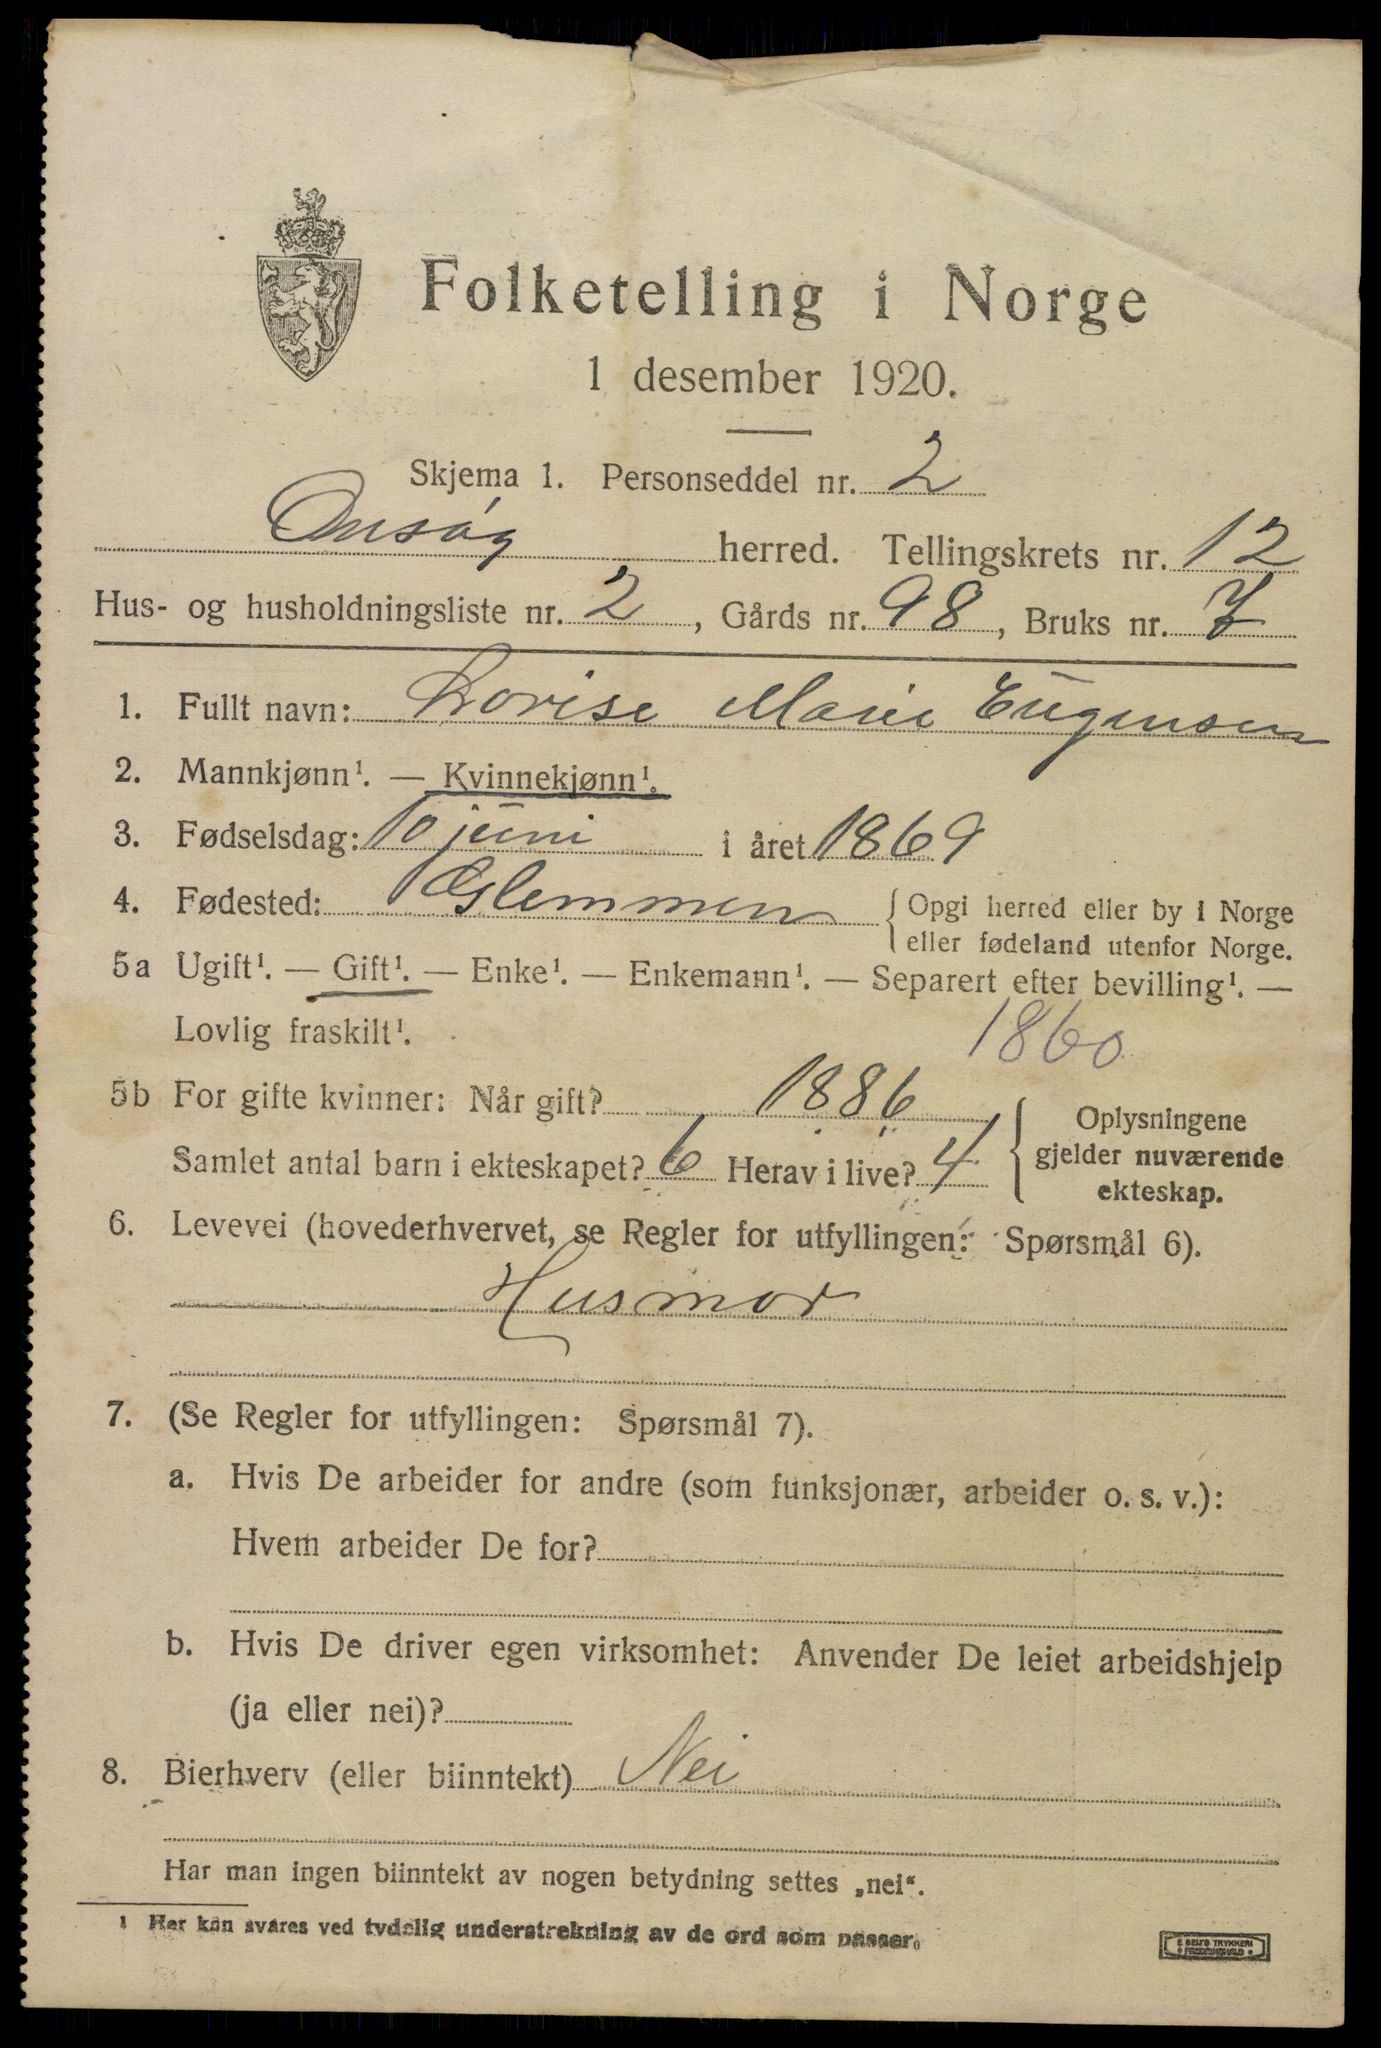 Folketelling i Norge
1 desember 1920.
Skjema 1. Personseddel nr. 2
Onsøy herred. Tellingskrets nr. 12
Hus- og husholdningsliste nr. 2, Gårds nr. 98, Bruks nr. 7
1. Fullt navn: Lovise Marie Eugensen
2. Mannkjønn¹. — Kvinnekjønn¹.
3. Fødselsdag: 10 juni i året 1869
4. Fødested: Glemmen { Opgi herred eller by i Norge
eller fødeland utenfor Norge.
5a Ugift¹. — Gift¹. — Enke¹. — Enkemann¹. — Separert efter bevilling¹. —
Lovlig fraskilt¹. 1860
5b For gifte kvinner: Når gift? 1886
Samlet antal barn i ekteskapet? 6 Herav i live? 4 { Oplysningene
gjelder nuværende
ekteskap.
6. Levevei (hovederhvervet, se Regler for utfyllingen: Spørsmål 6).
Husmor
7. (Se Regler for utfyllingen: Spørsmål 7).
a. Hvis De arbeider for andre (som funksjonær, arbeider o. s. v.):
Hvem arbeider De for?
b. Hvis De driver egen virksomhet: Anvender De leiet arbeidshjelp
(ja eller nei)?
8. Bierhverv (eller biinntekt) Nei
Har man ingen biinntekt av nogen betydning settes „nei“.
1 Her kan svares ved tydelig understrekning av de ord som passer.
E. SEM'S TRYKKERI
FREDRIKSHALD